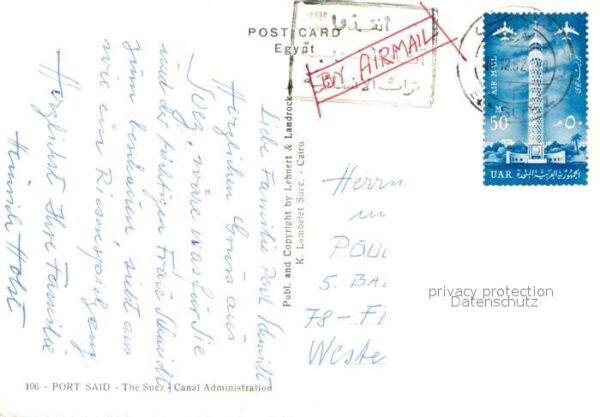 POST CARD
Egypt
أنقذوا
تراث الإنسانية
BY AIRMAIL
AIR MAIL
بريد جوي
M
50
٥٠
UAR
الجمهورية العربية المتحدة
Liebe Familie Paul Schmidt
Herzlichen Gruss aus
Suez, wäre was für Sie
und der tüchtigen Frau Schmidt
zum bemalen, sieht aus
wie ein Riesenspielzeug.
Herzlichst Ihre Familie
Heinrich Holst
Publ. and Copyright by Lehnert & Landrock
K. Lambelet Succ. - Cairo
Herrn
POUL
5. BA
78-F
Weste
privacy protection
Datenschutz
106 - PORT SAID - The Suez - Canal Administration